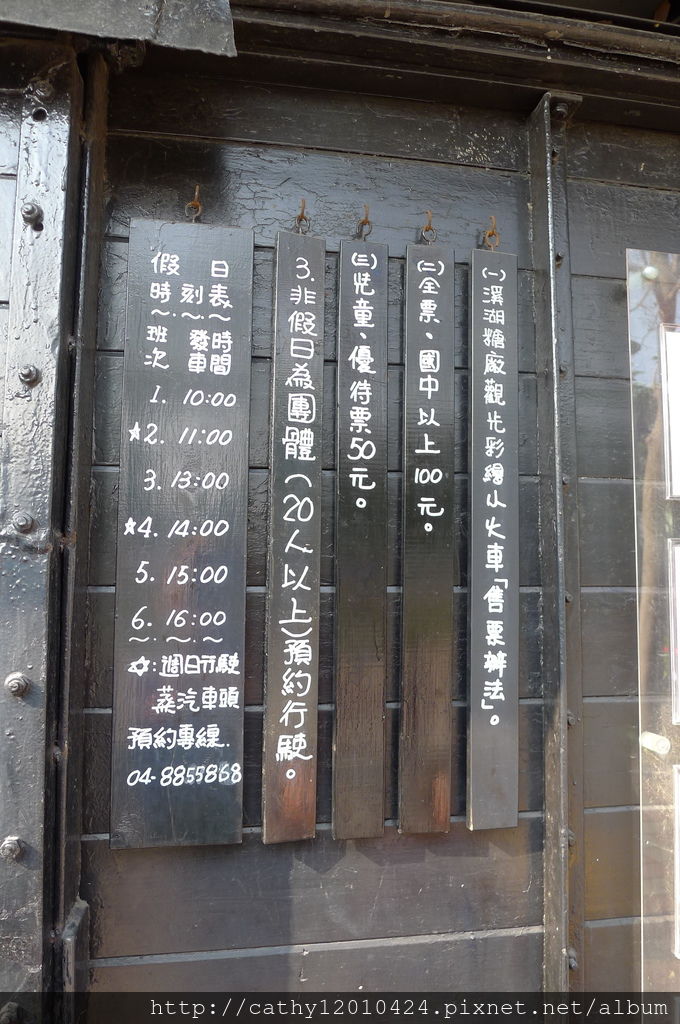 (一)溪湖糖廠觀光彩繪小火車「售票辦法」。
(二)全票、國中以上100元。
(三)児童、優待票50元。
3.非假日為團體(20人以上)預約行駛。
假日
時刻表
~.~.~
班次 發車時間
1. 10:00
☆2. 11:00
3. 13:00
☆4. 14:00
5. 15:00
6. 16:00
~.~.~
☆:週日行駛
蒸汽車頭
預約專線.
04-8855868
http://cathy12010424.pixnet.net/album